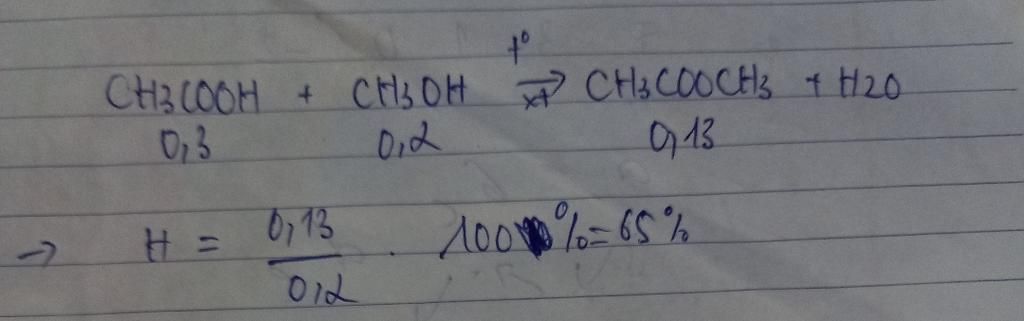 t°
CH3COOH + CH3OH ⇌ CH3COOCH3 + H2O
xt
0,3 0,2 0,13
→ H = 0,13 / 0,2 . 100 % = 65%